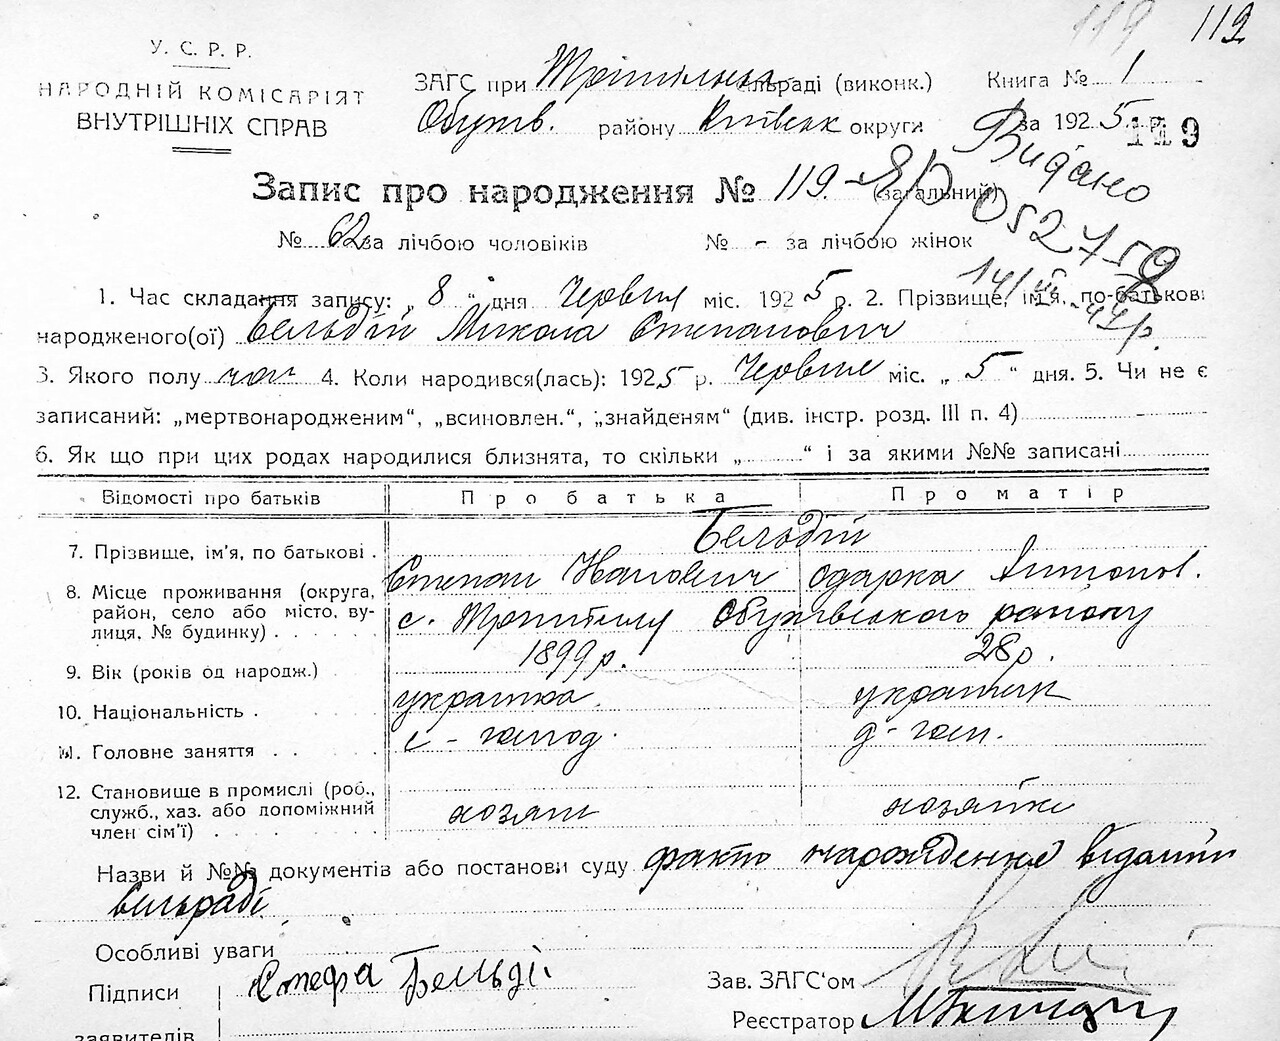 119 119
У. С. Р. Р.
НАРОДНІЙ КОМІСАРІЯТ
ВНУТРІШНІХ СПРАВ
ЗАГС при Трипільськ. сільраді (виконк.) Книга № 1
Обухів. району Київськ округи за 1925 р.
119
Видано
Запис про народження № 119. (загальний)
ЯР 052758
№ 62 за лічбою чоловіків № - за лічбою жінок
1. Час складання запису: „ 8 “ дня Червня міс. 1925 р. 2. Прізвище, ім'я, по-батькові
народженого(ої) Бельдій Микола Степанович
3. Якого полу чол 4. Коли народився(лась): 1925 р. Червня міс. „ 5 “ дня. 5. Чи не є
записаний: „мертвонародженим“, „всиновлен.“, „знайденям“ (див. інстр. розд. III п. 4)
6. Як що при цих родах народилися близнята, то скільки „ “ і за якими №№ записані
Відомості про батьків Про батька Про матір
7. Прізвище, ім'я, по батькові . Бельдій
Степан Іванович Одарка Антонов.
8. Місце проживання (округа, район, село або місто, вулиця, № будинку) с. Трипілля Обухівського району
9. Вік (років од народж.) 1899 р. 28 р.
10. Національність . українка. українк
11. Головне заняття . . с-господ. д-госп.
12. Становище в промислі (роб., служб., хаз. або допоміжний член сім'ї) хозяин хозяйка
Назви й №№ документів або постанови суду факт народження відомий
сельраді
Особливі уваги
Підписи Стефа Бельді Зав. ЗАГС'ом
заявителів Реєстратор